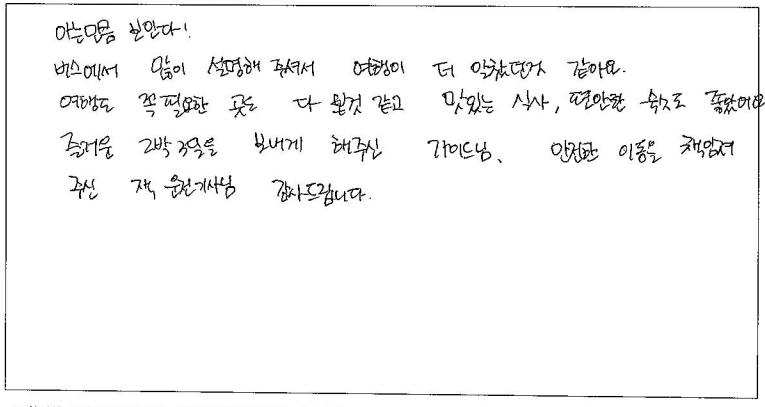 아는만큼 보인다!
버스에서 많이 설명해 주셔서 여행이 더 알찼던거 같아요.
여행도 꼭 필요한 곳도 다 본것 같고 맛있는 식사, 편안한 숙소도 좋았어요
즐거운 2박 3일을 보내게 해주신 가이드님, 안전한 이동을 책임져
주신 운전기사님 감사드립니다.